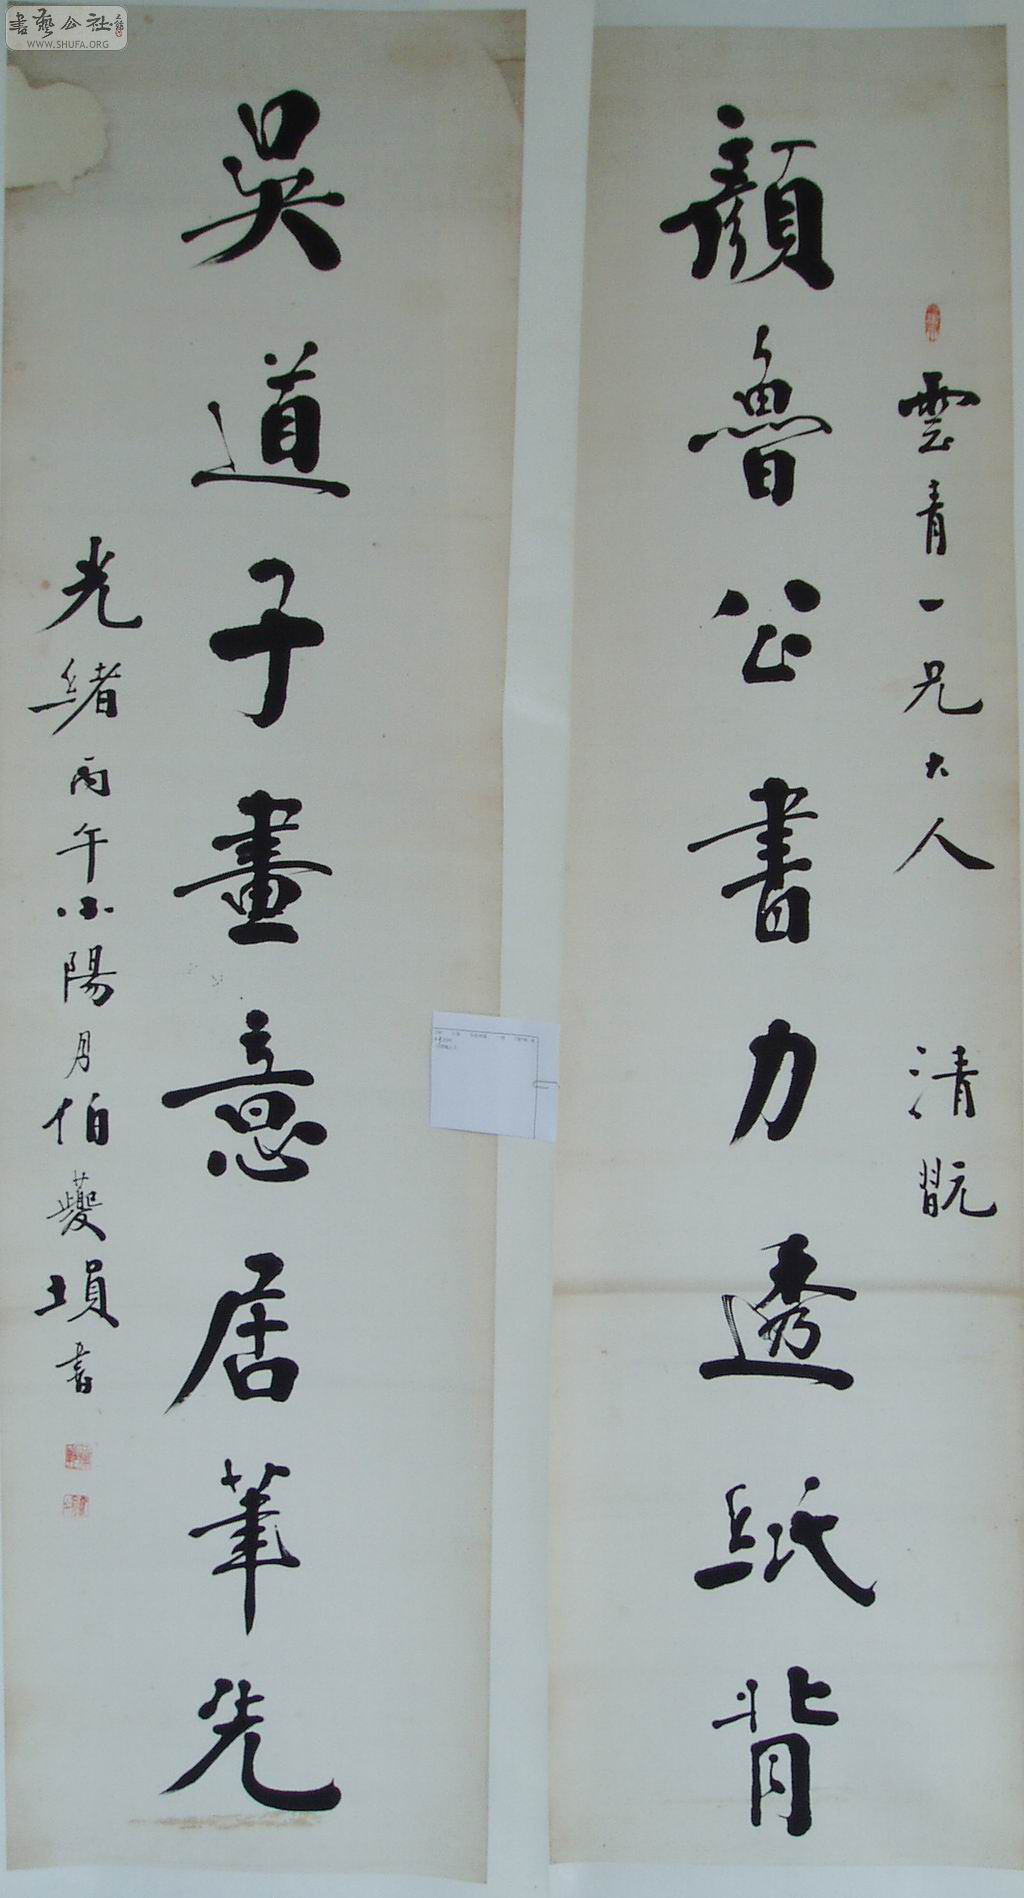 書藝公社
WWW.SHUFA.ORG
雲青一兄大人 清翫
顏魯公書力透紙背
吳道子畫意居筆先
光緒丙午小陽月伯夔塤書